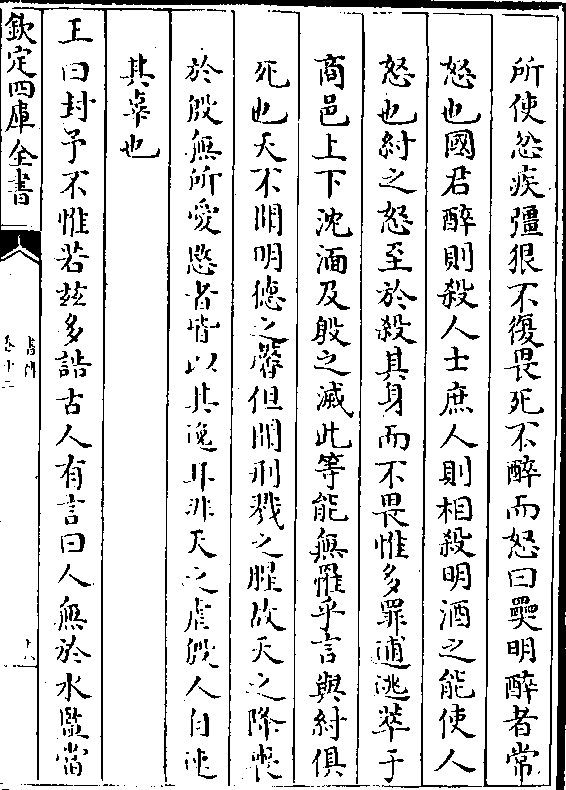 所使忿疾彊狠不復畏死不醉而怒曰奰明醉者常
怒也國君醉則殺人士庶人則相殺明酒之能使人
怒也紂之怒至於殺其身而不畏惟多罪逋逃萃于
商邑上下沈湎及殷之滅此等能無罹乎言與紂俱
死也天不聞明德之馨但聞刑戮之腥故天之降喪
於殷無所愛愍者皆以其逸耳非天之虐殷人自速
其辜也
王曰封予不惟若玆多誥古人有言曰人無於水監當
欽定四庫全書
書傳
卷十二